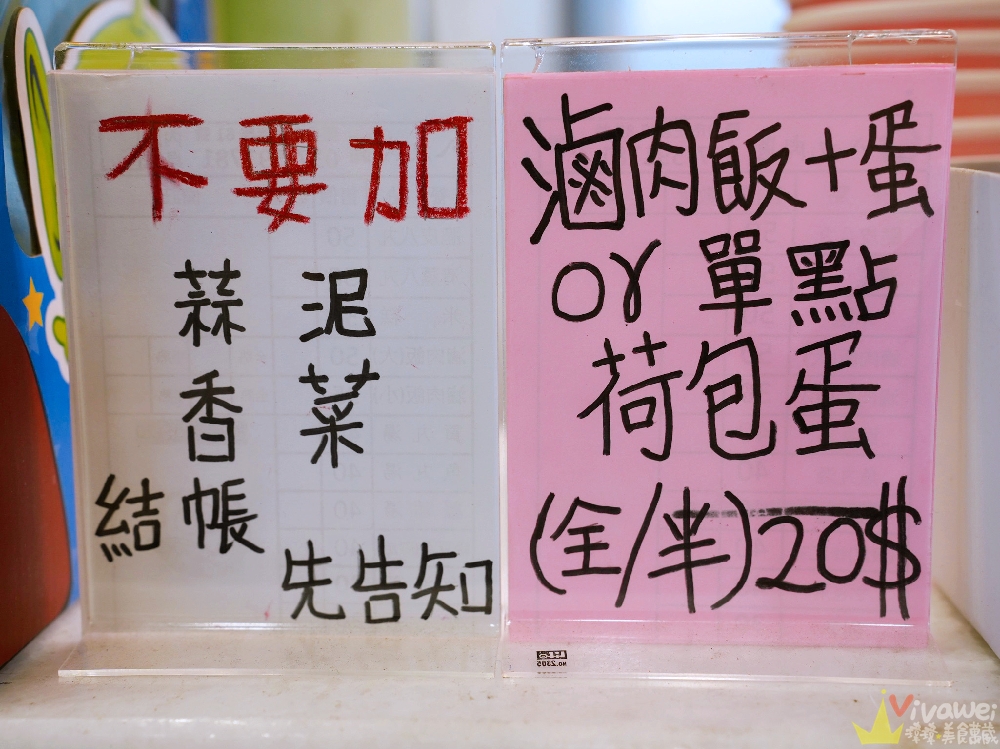 不要加
蒜泥
香菜
結帳
先告知
滷肉飯+蛋
or 單點
荷包蛋
(全/半)20$
NO.2305
Vivawei